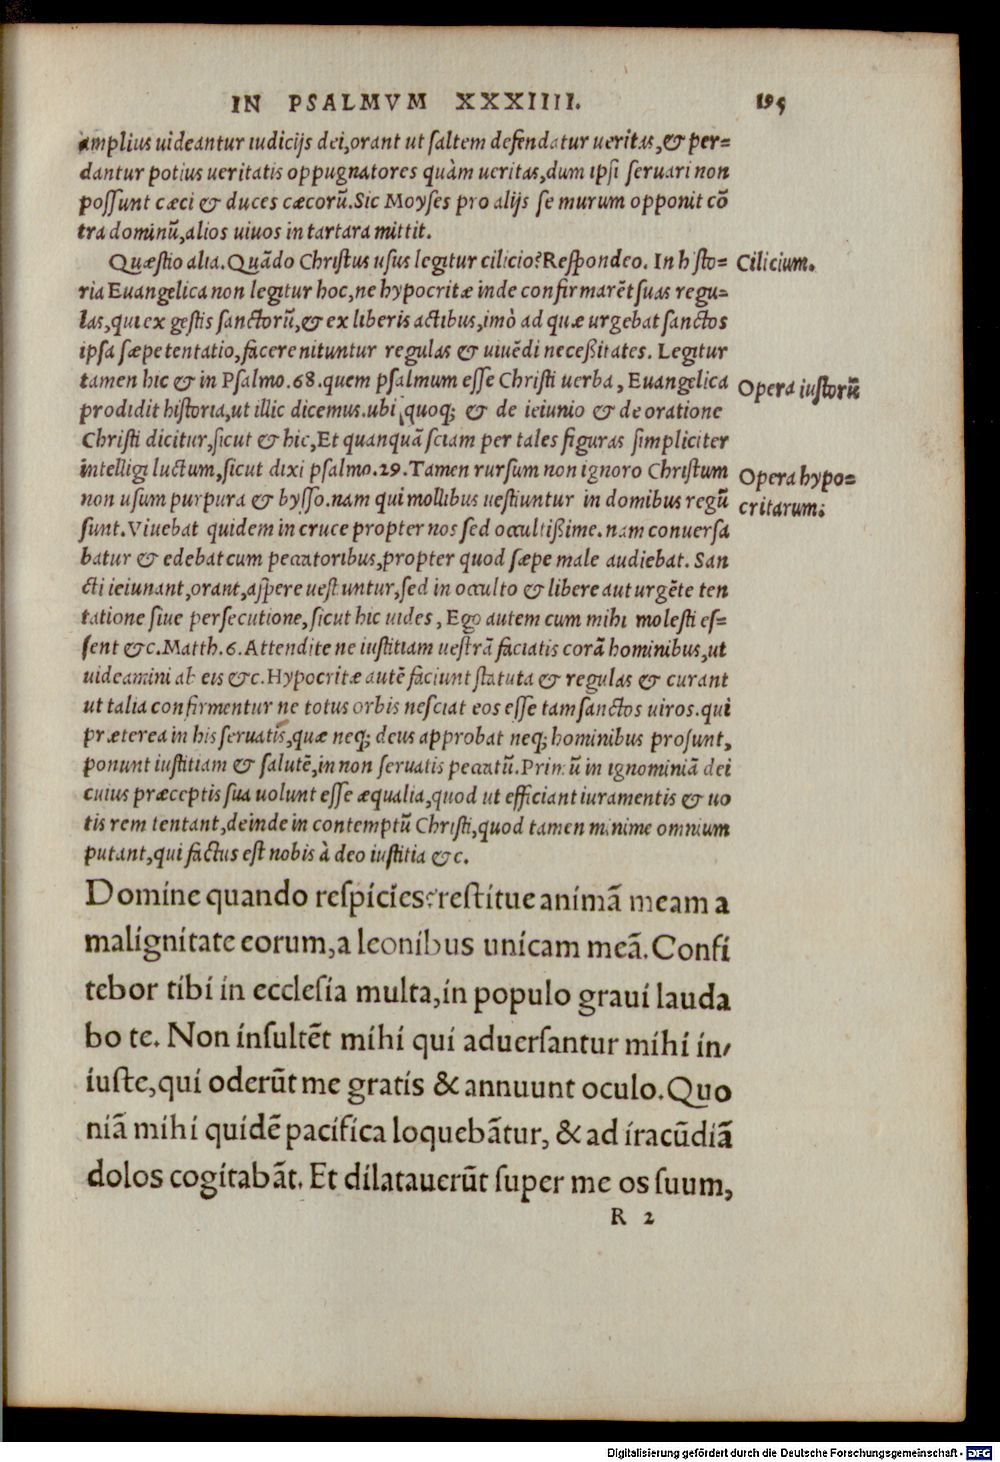 IN PSALMVM XXXIIII. 195
amplius uideantur iudicijs dei, orant ut saltem defendatur ueritas, & per=
dantur potius ueritatis oppugnatores quàm ueritas, dum ipsi seruari non
possunt cæci & duces cæcorũ. Sic Moyses pro alijs se murum opponit cõ
tra dominũ, alios uiuos in tartara mittit.
Quæstio alia. Quãdo Christus usus legitur cilicio? Respondeo. In histo=
Cilicium.
ria Euangelica non legitur hoc, ne hypocritæ inde confirmarẽt suas regu=
las, qui ex gestis sanctorũ, & ex liberis actibus, imò ad quæ urgebat sanctos
ipsa sæpe tentatio, facere nituntur regulas & uiuẽdi necessitates. Legitur
tamen hic & in Psalmo. 68. quem psalmum esse Christi uerba, Euangelica
Opera iustorũ
prodidit historia, ut illic dicemus. ubi quoq; & de ieiunio & de oratione
Christi dicitur, sicut & hic, Et quanquã sciam per tales figuras simpliciter
intelligi luctum, sicut dixi psalmo. 29. Tamen rursum non ignoro Christum
Opera hypo=
non usum purpura & bysso. nam qui mollibus uestiuntur in domibus regũ
critarum.
sunt. Viuebat quidem in cruce propter nos sed occultissime. nam conuersa
batur & edebat cum peccatoribus, propter quod sæpe male audiebat. San
cti ieiunant, orant, aspere uestiuntur, sed in occulto & libere aut urgẽte ten
tatione siue persecutione, sicut hic uides, Ego autem cum mihi molesti es=
sent &c. Matth. 6. Attendite ne iustitiam uestrã faciatis corã hominibus, ut
uideamini ab eis &c. Hypocritæ autẽ faciunt statuta & regulas & curant
ut talia confirmentur ne totus orbis nesciat eos esse tam sanctos uiros. qui
præterea in his seruatis, quæ neq; deus approbat neq; hominibus prosunt,
ponunt iustitiam & salutẽ, in non seruatis peccatũ. Primũ in ignominiã dei
cuius præceptis sua uolunt esse æqualia, quod ut efficiant iuramentis & uo
tis rem tentant, deinde in contemptũ Christi, quod tamen minime omnium
putant, qui factus est nobis à deo iustitia &c.
Domine quando respicies? restitue animã meam a
malignitate eorum, a leonibus unicam meã. Confi
tebor tibi in ecclesia multa, in populo graui lauda
bo te. Non insultẽt mihi qui aduersantur mihi in/
iuste, qui oderũt me gratis & annuunt oculo. Quo
niã mihi quidẽ pacifica loquebãtur, & ad iracũdiã
dolos cogitabãt. Et dilatauerũt super me os suum,
R 2
Digitalisierung gefördert durch die Deutsche Forschungsgemeinschaft - DFG